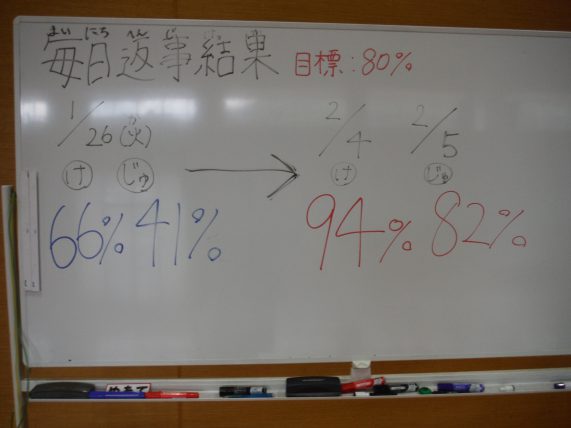 まい にち へん じ
毎日返事結果 目標:80%
1/26(火) 2/4 2/5
け じゅ け じゅ
66% 41% 94% 82%
めあて